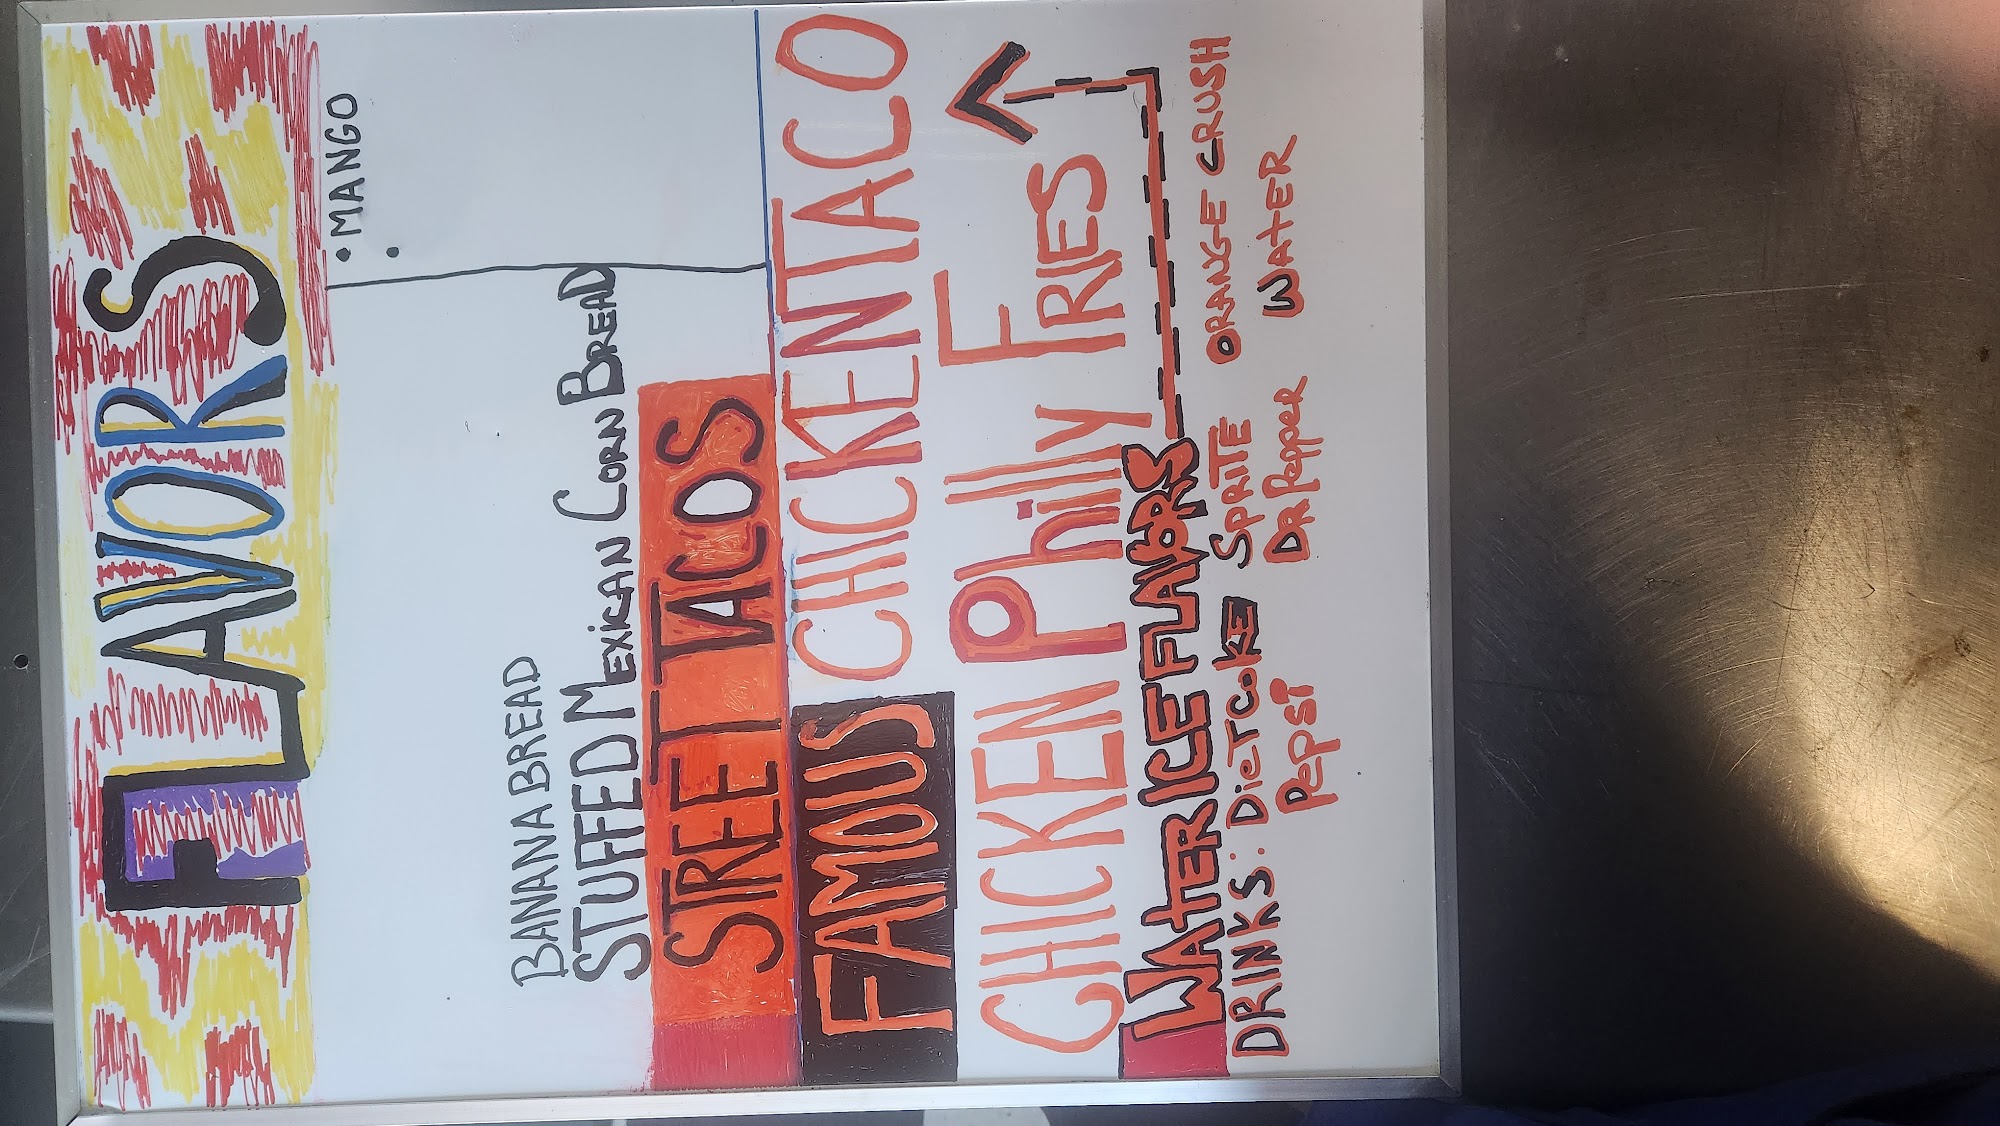 FLAVORS
• MANGO
•
BANANA BREAD
STUFFED MEXICAN CORN BREAD
STREET TACOS
FAMOUS CHICKEN TACO
CHICKEN Philly FRIES
WAtER ICE FLAVORS
DRINKS: DIETCOKE SPRITE ORANGE CRUSH
PEPSi DR PEPPER WAtER